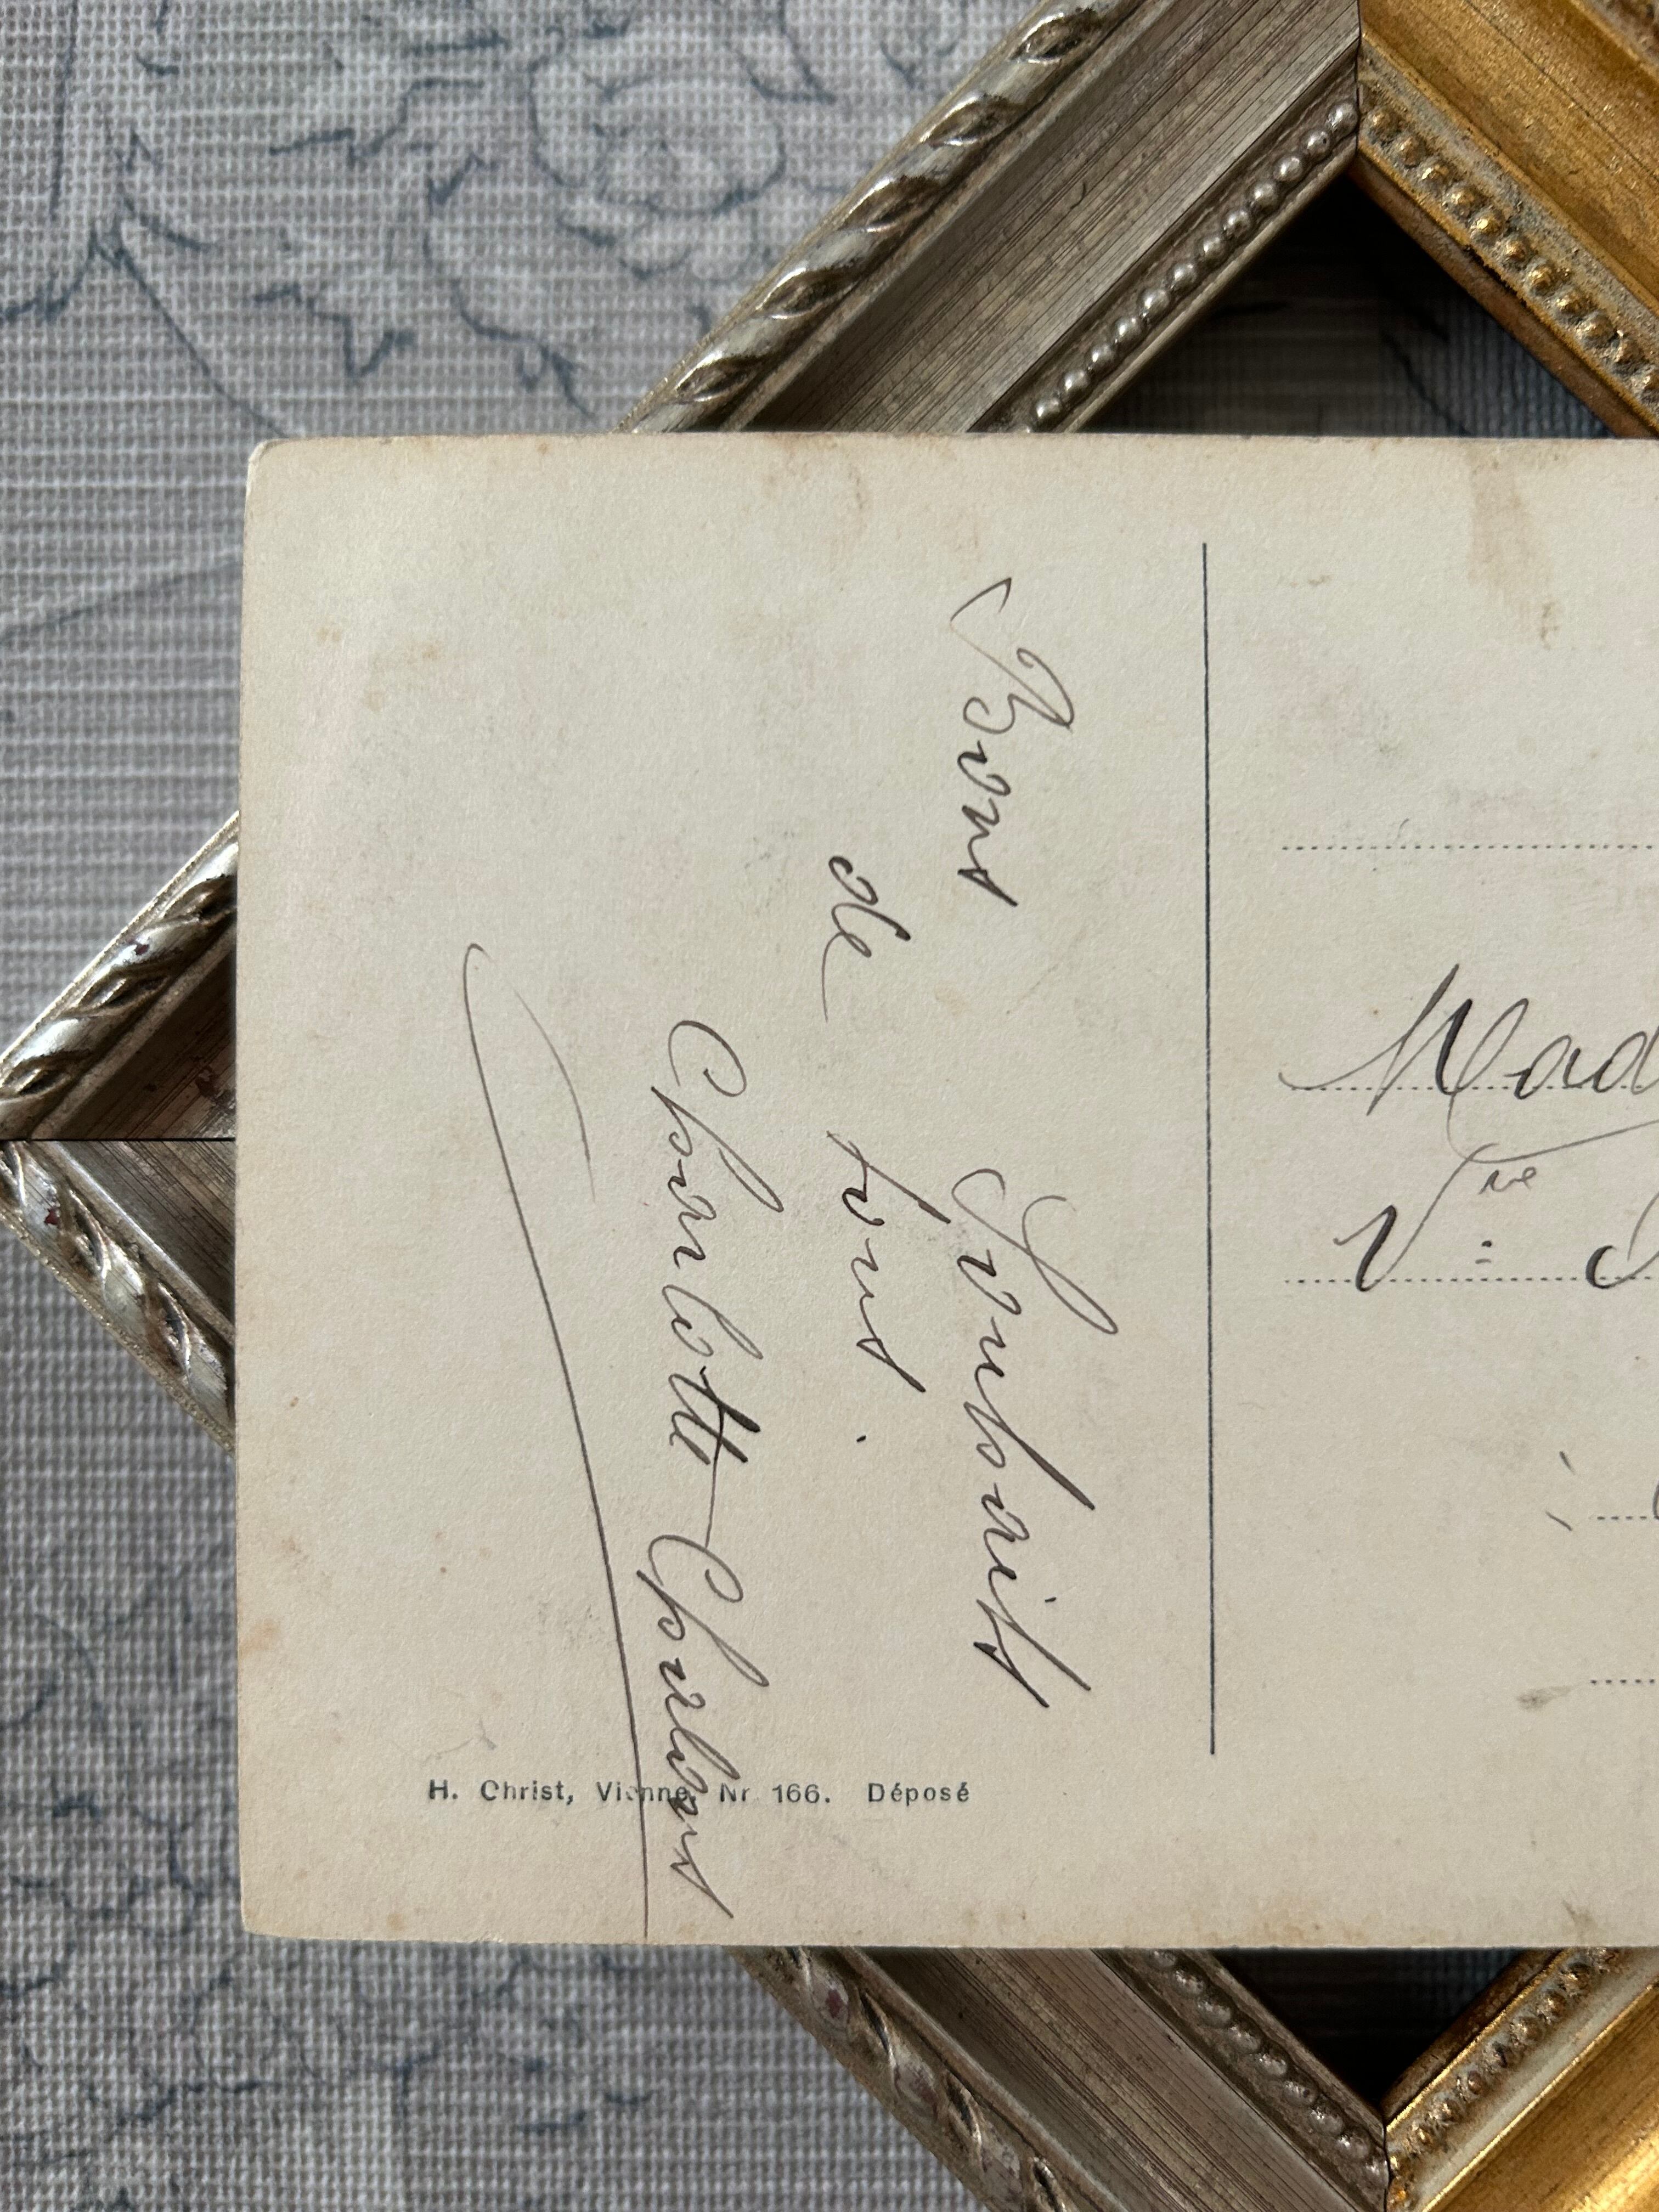 Bons Souhaits
de tous.
Charlotte Charlons
H. Christ, Vienne, Nr 166. Déposé
Mad
Vve